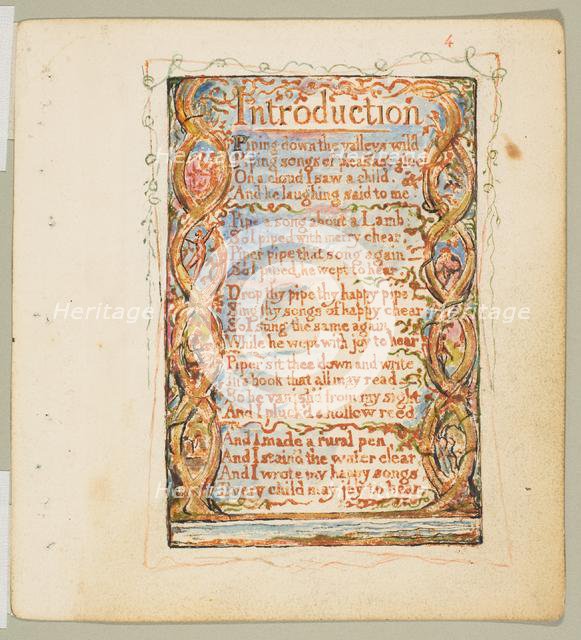 4
Introduction
Piping down the valleys wild
Piping songs of pleasant glee
On a cloud I saw a child.
And he laughing said to me.
Pipe a song about a Lamb:
So I piped with merry chear,
Piper pipe that song again
So I piped, he wept to hear.
Drop thy pipe thy happy pipe
Sing thy songs of happy chear
So I sung the same again
While he wept with joy to hear
Piper sit thee down and write
In a book that all may read
So he vanish'd from my sight
And I pluck'd a hollow reed.
And I made a rural pen,
And I stain'd the water clear,
And I wrote my happy songs
Every child may joy to hear
Heritage
Heritage
Heritage
Heritage
Heritage
Heritage
Heritage